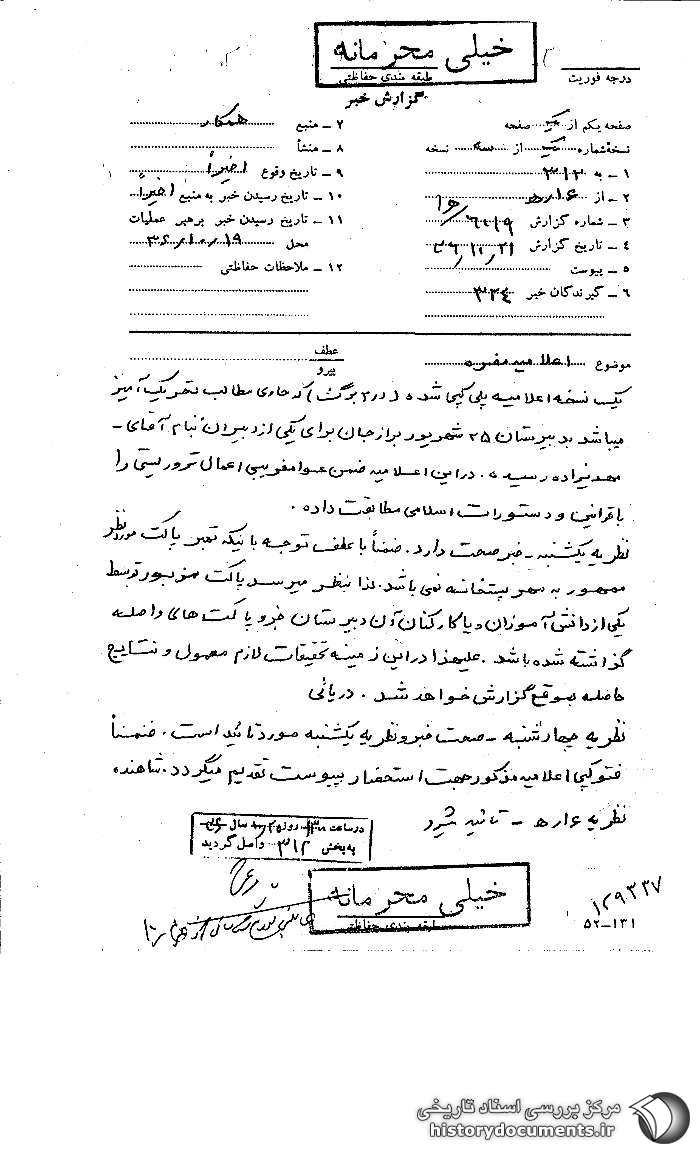 خیلی محرمانه
طبقه بندی حفاظتی
درجه فوریت
گزارش خبر
صفحه یکم از یک صفحه
نسخه شماره یک از سه نسخه
۱ – به ۳۱۲
۲ – از ۶ ا ره
۳ – شماره گزارش
۴ – تاریخ گزارش
۵ – پیوست
۶ – گیرندگان خبر ۳۳۴
۷ – منبع همکار
۸ – منشأ
۹ – تاریخ وقوع اخیراً
۱۰ – تاریخ رسیدن خبر به منبع اخیراً
۱۱ – تاریخ رسیدن خبر برهبر عملیات
محل ۳۶،۱۰،۱۹
۱۲ – ملاحظات حفاظتی
موضوع اعلامیه مضره
عطف
پیرو
یک نسخه اعلامیه پلی کپی شده (در ۳ برگ) که حاوی مطالب تحریک آمیز
میباشد بدبیرستان ۲۵ شهریور برازجان برای یکی از دبیران بنام آقای –
مهدیزاده رسیده. دراین اعلامیه ضمن عوامفریبی اعمال تروریستی را
با قوانین و دستورات اسلامی مطابقت داده.
نظریه یکشنبه – خبر صحت دارد. ضمناً با عطف توجه باینکه تمبر پاکت مورد نظر
ممهور به مهر پستخانه نمی باشد. لذا بنظر میرسد پاکت مزبور توسط
یکی از دانش آموزان و یا کارکنان آن دبیرستان جزو پاکت های واصله
گذاشته شده باشد. علیهذا دراین زمینه تحقیقات لازم معمول و نتایج
حاصله بموقع گزارش خواهد شد. دریائی
نظریه چهارشنبه – صحت خبر و نظریه یکشنبه مورد تائید است. ضمناً
فتوکپی اعلامیه مذکور جهت استحضار بپیوست تقدیم میگردد. شاهنده
نظریه ۶ ا ره – تائید میشود
در ساعت روز سال
به بخش ۳۱۲ واصل گردید
خیلی محرمانه
طبقه بندی حفاظتی
۱۲۹۳۳۷
۵۲–۱۳۱
مرکز بررسی اسناد تاریخی
historydocuments.ir